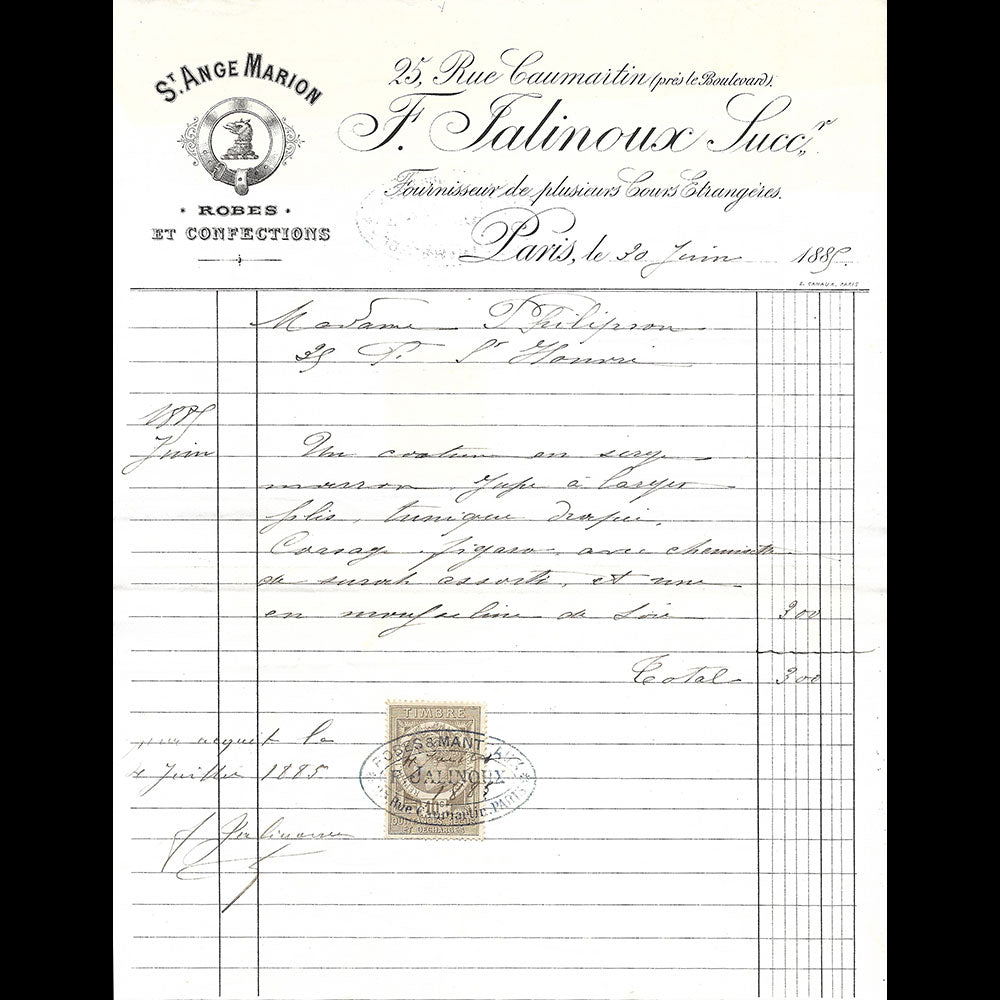 ST ANGE MARION
ROBES
ET CONFECTIONS
25, Rue Caumartin (près le Boulevard).
F. Jalinoux Succr.
Fournisseur de plusieurs Cours Etrangères.
Paris, le 30 Juin 1885.
E. CANAUX, PARIS
Madame Philipson
35 F. St Honoré
1885
Juin
Un costume en serge
marron. Jupe à larges
plis, tunique drapée.
Corsage figaro avec chemisette
de surah assorti, et une
en mousseline de soie 300
Total 300
TIMBRE
ROBES & MANTEAUX
F. JALINOUX
4 Juillet
1885
25, Rue Caumartin. PARIS
10c
QUITTANCES REÇUS
ET DÉCHARGES
pour acquit le
4 Juillet 1885
F Jalinoux